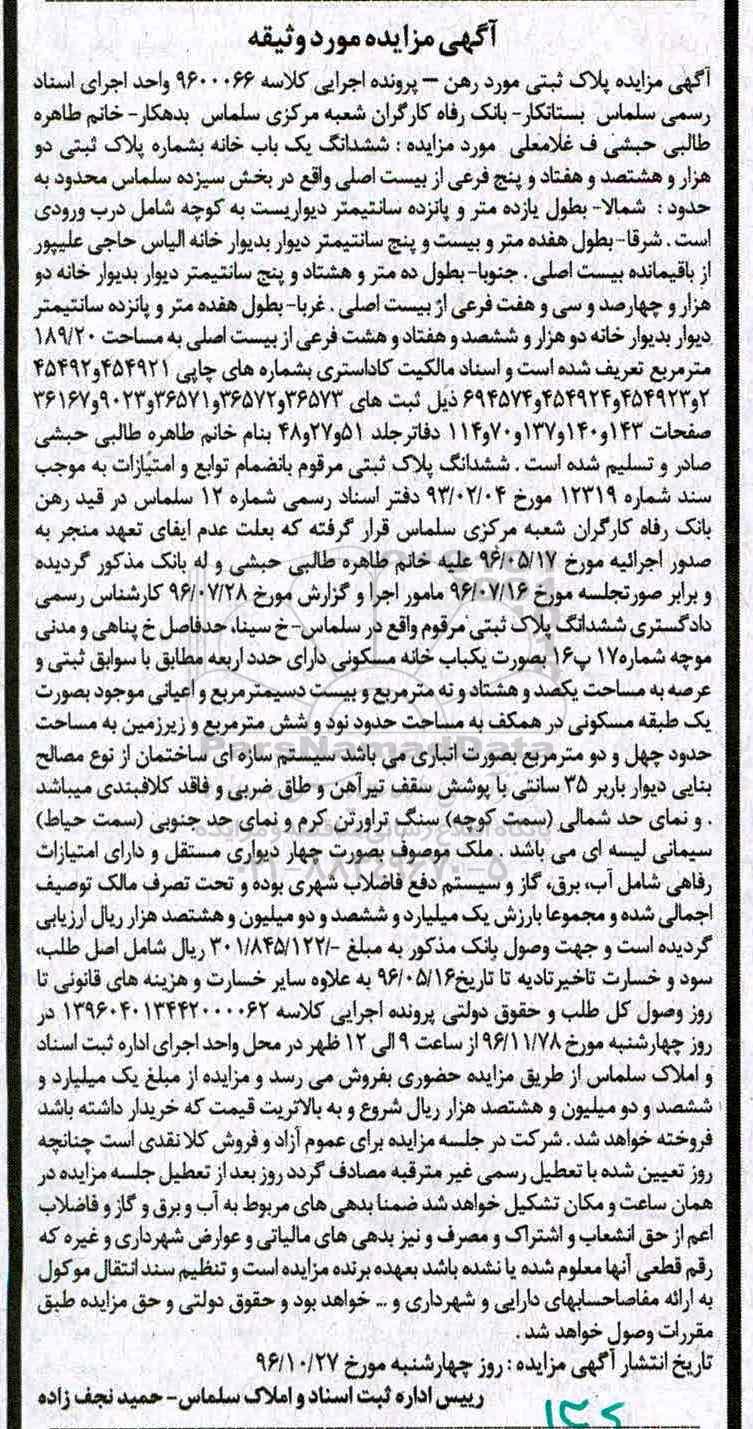 آگهی مزایده مورد وثیقه
آگهی مزایده پلاک ثبتی مورد رهن – پرونده اجرایی کلاسه ۹۶۰۰۰۶۶ واحد اجرای اسناد
رسمی سلماس بستانکار- بانک رفاه کارگران شعبه مرکزی سلماس بدهکار- خانم طاهره
طالبی حبشی ف غلامعلی مورد مزایده : ششدانگ یک باب خانه بشماره پلاک ثبتی دو
هزار و هشتصد و هفتاد و پنج فرعی از بیست اصلی واقع در بخش سیزده سلماس محدود به
حدود : شمالا- بطول یازده متر و پانزده سانتیمتر دیواریست به کوچه شامل درب ورودی
است . شرقا- بطول هفده متر و بیست و پنج سانتیمتر دیوار بدیوار خانه الیاس حاجی علیپور
از باقیمانده بیست اصلی . جنوبا- بطول ده متر و هشتاد و پنج سانتیمتر دیوار بدیوار خانه دو
هزار و چهارصد و سی و هفت فرعی از بیست اصلی . غربا- بطول هفده متر و پانزده سانتیمتر
دیوار بدیوار خانه دو هزار و ششصد و هفتاد و هشت فرعی از بیست اصلی به مساحت ۱۸۹/۲۰
مترمربع تعریف شده است و اسناد مالکیت کاداستری بشماره های چاپی ۴۵۴۹۲۱و۴۵۴۹۲
۲و۴۵۴۹۲۳و۴۵۴۹۲۴و۶۹۴۵۷۴ ذیل ثبت های ۳۶۵۷۳و۳۶۵۷۲و۳۶۵۷۱و۹۰۲۳و۳۶۱۶۷
صفحات ۱۴۳و۱۴۰و۱۳۷و۷۰و۱۱۴ دفاترجلد ۵۱و۲۷و۴۸ بنام خانم طاهره طالبی حبشی
صادر و تسلیم شده است . ششدانگ پلاک ثبتی مرقوم بانضمام توابع و امتیازات به موجب
سند شماره ۱۲۳۱۹ مورخ ۹۳/۰۲/۰۴ دفتر اسناد رسمی شماره ۱۲ سلماس در قید رهن
بانک رفاه کارگران شعبه مرکزی سلماس قرار گرفته که بعلت عدم ایفای تعهد منجر به
صدور اجرائیه مورخ ۹۶/۰۵/۱۷ علیه خانم طاهره طالبی حبشی و له بانک مذکور گردیده
و برابر صورتجلسه مورخ ۹۶/۰۷/۱۶ مامور اجرا و گزارش مورخ ۹۶/۰۷/۲۸ کارشناس رسمی
دادگستری ششدانگ پلاک ثبتی مرقوم واقع در سلماس-خ سینا، حدفاصل خ پناهی و مدنی
موچه شماره۱۷ پ۱۶ بصورت یکباب خانه مسکونی دارای حدد اربعه مطابق با سوابق ثبتی و
عرصه به مساحت یکصد و هشتاد و نه مترمربع و بیست دسیمترمربع و اعیانی موجود بصورت
یک طبقه مسکونی در همکف به مساحت حدود نود و شش مترمربع و زیرزمین به مساحت
حدود چهل و دو مترمربع بصورت انباری می باشد سیستم سازه ای ساختمان از نوع مصالح
بنایی دیوار باربر ۳۵ سانتی با پوشش سقف تیرآهن و طاق ضربی و فاقد کلافبندی میباشد
. و نمای حد شمالی (سمت کوچه) سنگ تراورتن کرم و نمای حد جنوبی (سمت حیاط)
سیمانی لیسه ای می باشد . ملک موصوف بصورت چهار دیواری مستقل و دارای امتیازات
رفاهی شامل آب، برق، گاز و سیستم دفع فاضلاب شهری بوده و تحت تصرف مالک توصیف
اجمالی شده و مجموعا بارزش یک میلیارد و ششصد و دو میلیون و هشتصد هزار ریال ارزیابی
گردیده است و جهت وصول بانک مذکور به مبلغ -/۳۰۱/۸۴۵/۱۲۲ ریال شامل اصل طلب،
سود و خسارت تاخیرتادیه تا تاریخ۹۶/۰۵/۱۶ به علاوه سایر خسارت و هزینه های قانونی تا
روز وصول کل طلب و حقوق دولتی پرونده اجرایی کلاسه ۱۳۹۶۰۴۰۱۳۴۴۲۰۰۰۰۶۲ در
روز چهارشنبه مورخ ۹۶/۱۱/۷۸ از ساعت ۹ الی ۱۲ ظهر در محل واحد اجرای اداره ثبت اسناد
و املاک سلماس از طریق مزایده حضوری بفروش می رسد و مزایده از مبلغ یک میلیارد و
ششصد و دو میلیون و هشتصد هزار ریال شروع و به بالاتریت قیمت که خریدار داشته باشد
فروخته خواهد شد . شرکت در جلسه مزایده برای عموم آزاد و فروش کلا نقدی است چنانچه
روز تعیین شده با تعطیل رسمی غیر مترقبه مصادف گردد روز بعد از تعطیل جلسه مزایده در
همان ساعت و مکان تشکیل خواهد شد ضمنا بدهی های مربوط به آب و برق و گاز و فاضلاب
اعم از حق انشعاب و اشتراک و مصرف و نیز بدهی های مالیاتی و عوارض شهرداری و غیره که
رقم قطعی آنها معلوم شده یا نشده باشد بعهده برنده مزایده است و تنظیم سند انتقال موکول
به ارائه مفاصاحسابهای دارایی و شهرداری و ... خواهد بود و حقوق دولتی و حق مزایده طبق
مقررات وصول خواهد شد .
تاریخ انتشار آگهی مزایده : روز چهارشنبه مورخ ۹۶/۱۰/۲۷
رییس اداره ثبت اسناد و املاک سلماس- حمید نجف زاده
ParsNamadData
پایگاه اطلاع رسانی مناقصه و مزایده
۰۲۱-۸۸۳۴۹۶۷۰-۵